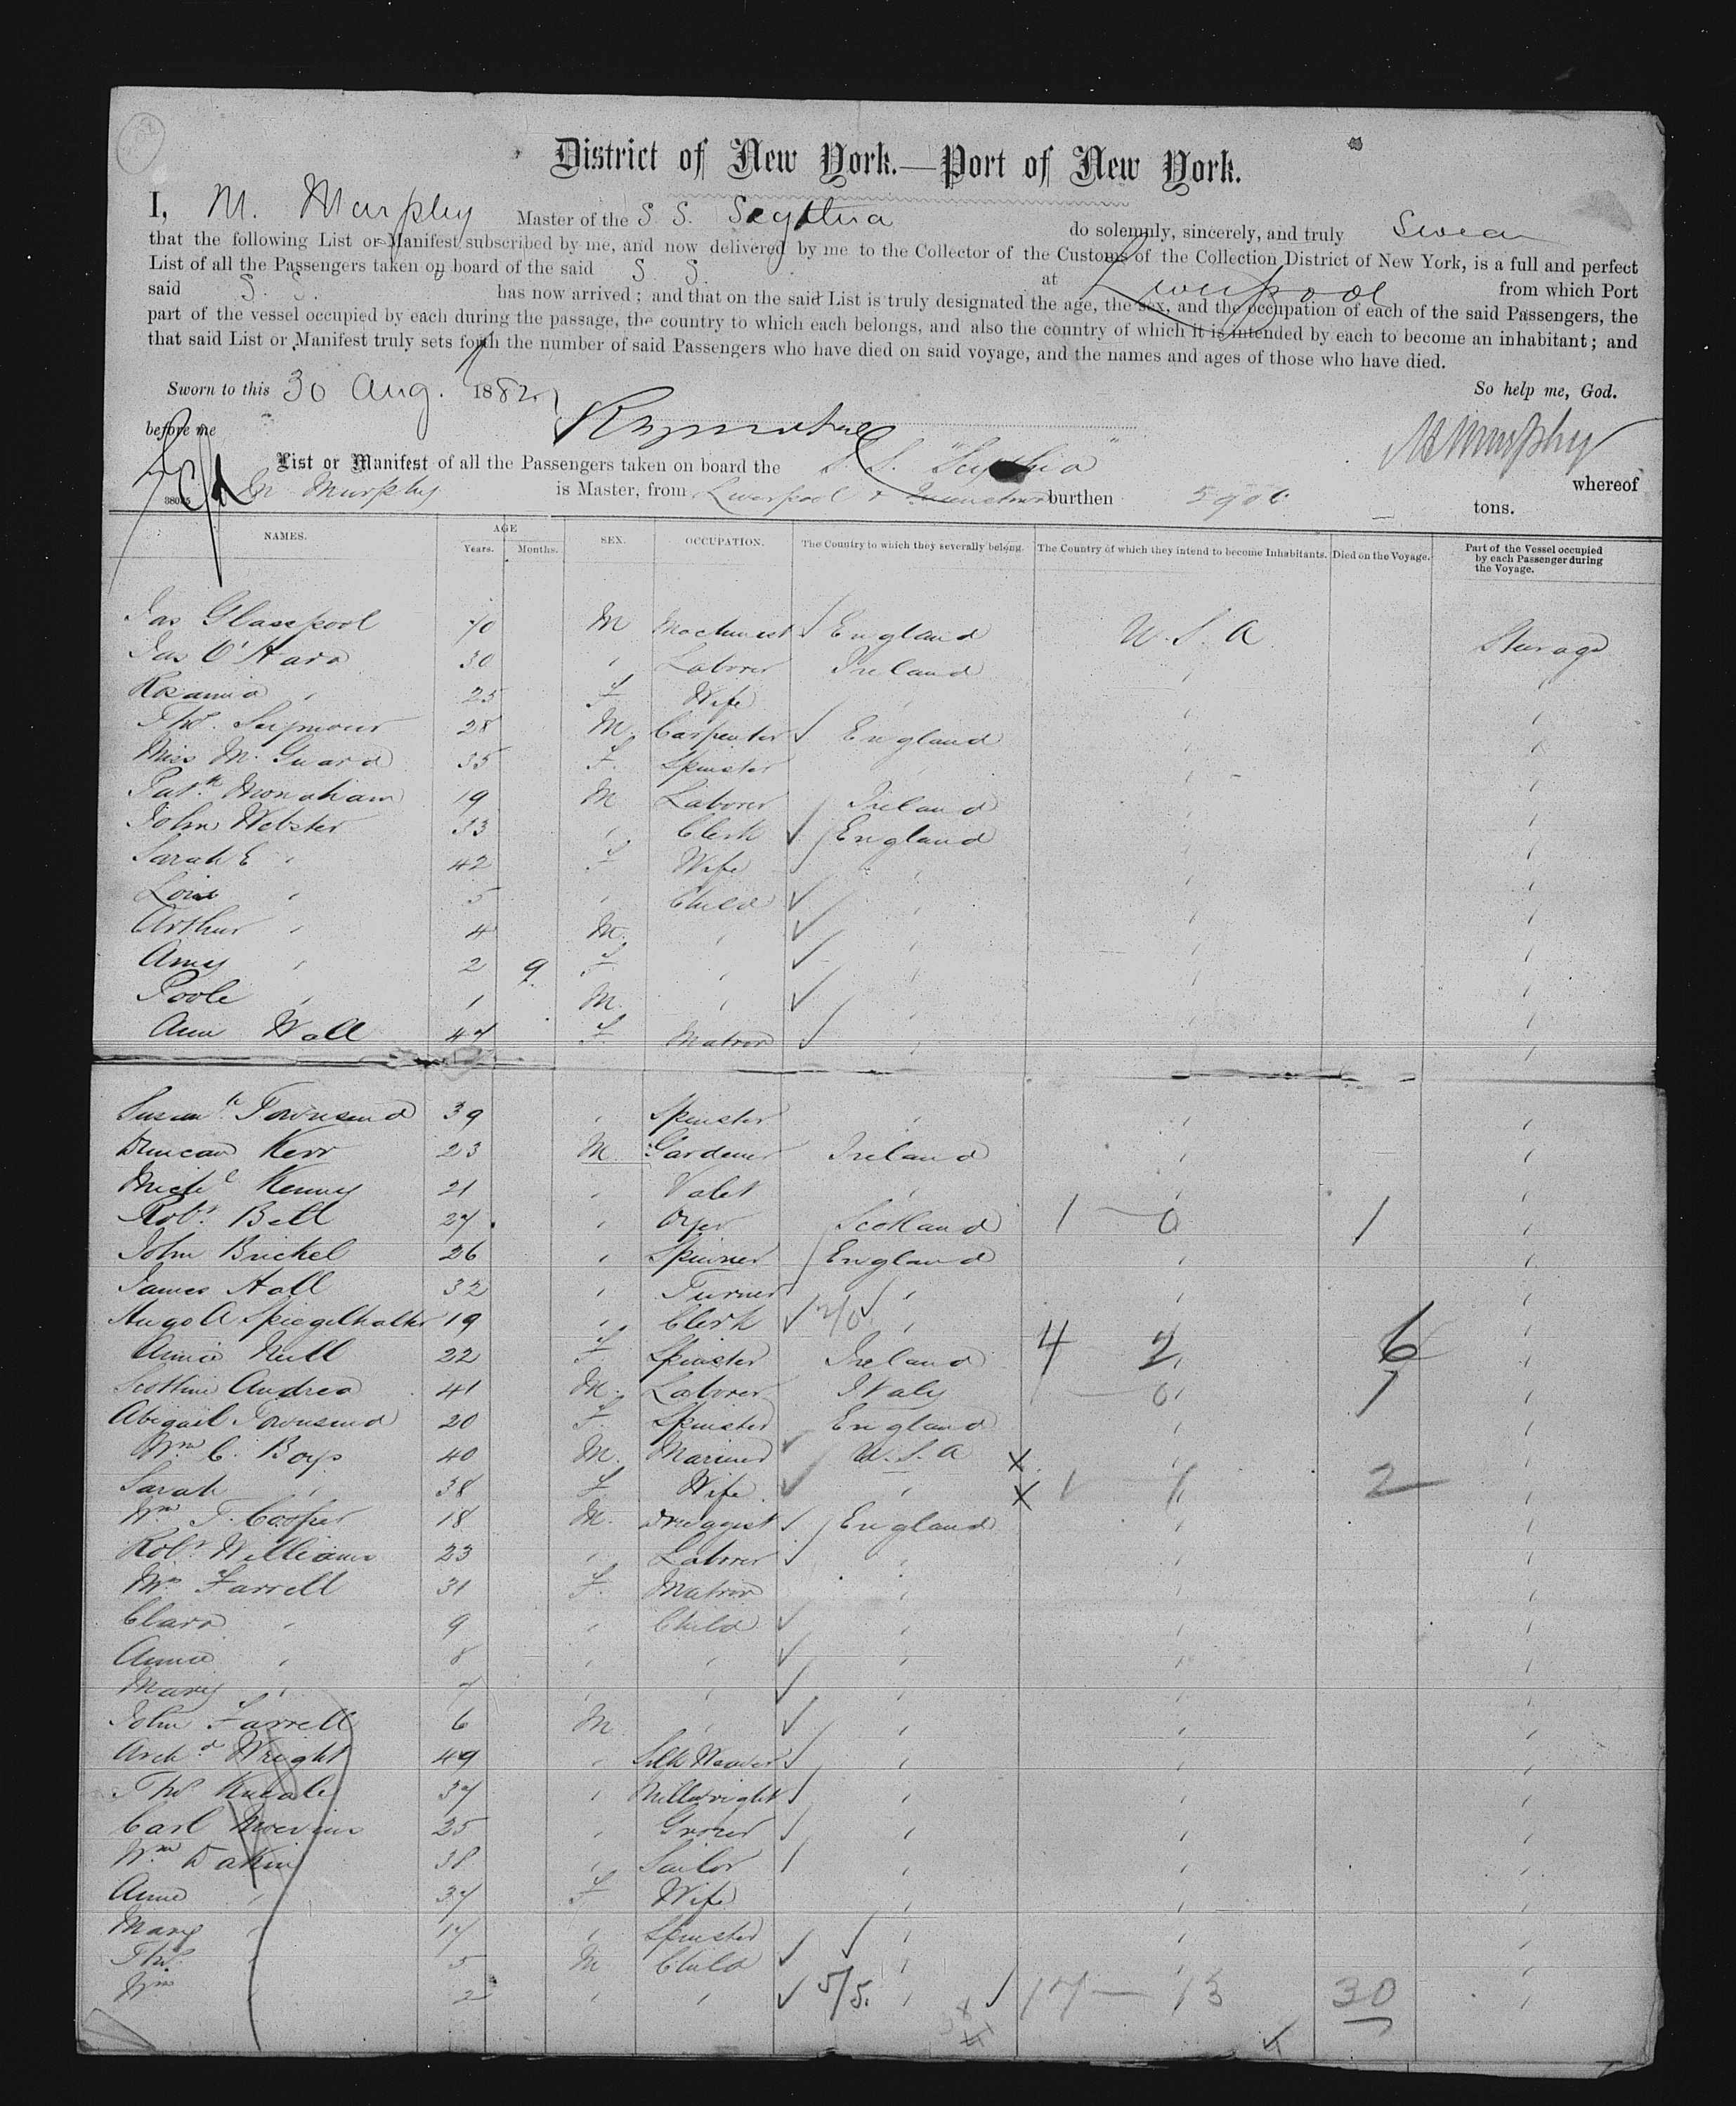 District of New York.—Port of New York.
I, M. Murphy Master of the S. S. Scythia do solemnly, sincerely, and truly Swear
that the following List or Manifest subscribed by me, and now delivered by me to the Collector of the Customs of the Collection District of New York, is a full and perfect
List of all the Passengers taken on board of the said S. S. at Liverpool from which Port
said S. S. has now arrived; and that on the said List is truly designated the age, the sex, and the occupation of each of the said Passengers, the
part of the vessel occupied by each during the passage, the country to which each belongs, and also the country of which it is intended by each to become an inhabitant; and
that said List or Manifest truly sets forth the number of said Passengers who have died on said voyage, and the names and ages of those who have died.
Sworn to this 30 Aug. 1882 So help me, God.
before me M Murphy
List or Manifest of all the Passengers taken on board the S. S. "Scythia" whereof
M Murphy is Master, from Liverpool & Queenstown burthen tons.
NAMES. AGE Years. Months. SEX. OCCUPATION. The Country to which they severally belong. The Country of which they intend to become Inhabitants. Died on the Voyage. Part of the Vessel occupied by each Passenger during the Voyage.
Jas Glasspool 40 M Machinist England U. S. A Steerage
Jas O'Hara 30 " Laborer Ireland " "
Rosanna " 25 F Wife " " "
Thos. Seymour 28 M. Carpenter England " "
Miss M. Guard 35 F. Spinster " " "
Patk Monaham 19 M Laborer Ireland " "
John Webster 33 " Clerk England " "
Sarah E " 42 F Wife " " "
Lois " 5 " Child " " "
Arthur " 4 M. " " " "
Amy " 2 9 F " " " "
Poole " 1 M. " " " "
Ann Wall 47 F Matron " " "
Townsend 39 " Spinster " " "
Duncan Kerr 23 M. Gardener Ireland " "
Michl Kenny 21 " Valet " " "
Robt. Bell 27 " Dyer Scotland 1 — 0 1 "
John Brickel 26 " Spinner England " "
James Hall 32 " Turner " " "
Hugo A Spiegelhalter 19 " Clerk " " "
Annie Neill 22 F Spinster Ireland 4 2 6 "
Andrea 41 M. Laborer Italy — 0 1 "
Abigail Townsend 20 F. Spinster England " "
Wm C. Boys 40 M. Mariner U. S. A X " "
Sarah " 38 F Wife " X 1 1 2 "
Wm T. Cooper 18 M. Druggist England " "
Robt Williams 23 " Laborer " " "
Mrs Farrell 31 F. Matron " " "
Clara " 9 " Child " " "
Annie " 8 " " " " "
Mary " 7 " " " " "
John Farrell 6 M " " " "
Archd Wright 49 " Silk Weaver " " "
Thos 37 " Millwright " " "
Carl 25 " Grocer " " "
Wm Dakin 38 " Sailor " " "
Anne " 37 F Wife " " "
Mary " 17 " Spinster " " "
Thos. " 5 M Child " " "
Wm " 2 " " 5/5. " 17 — 13 30 "